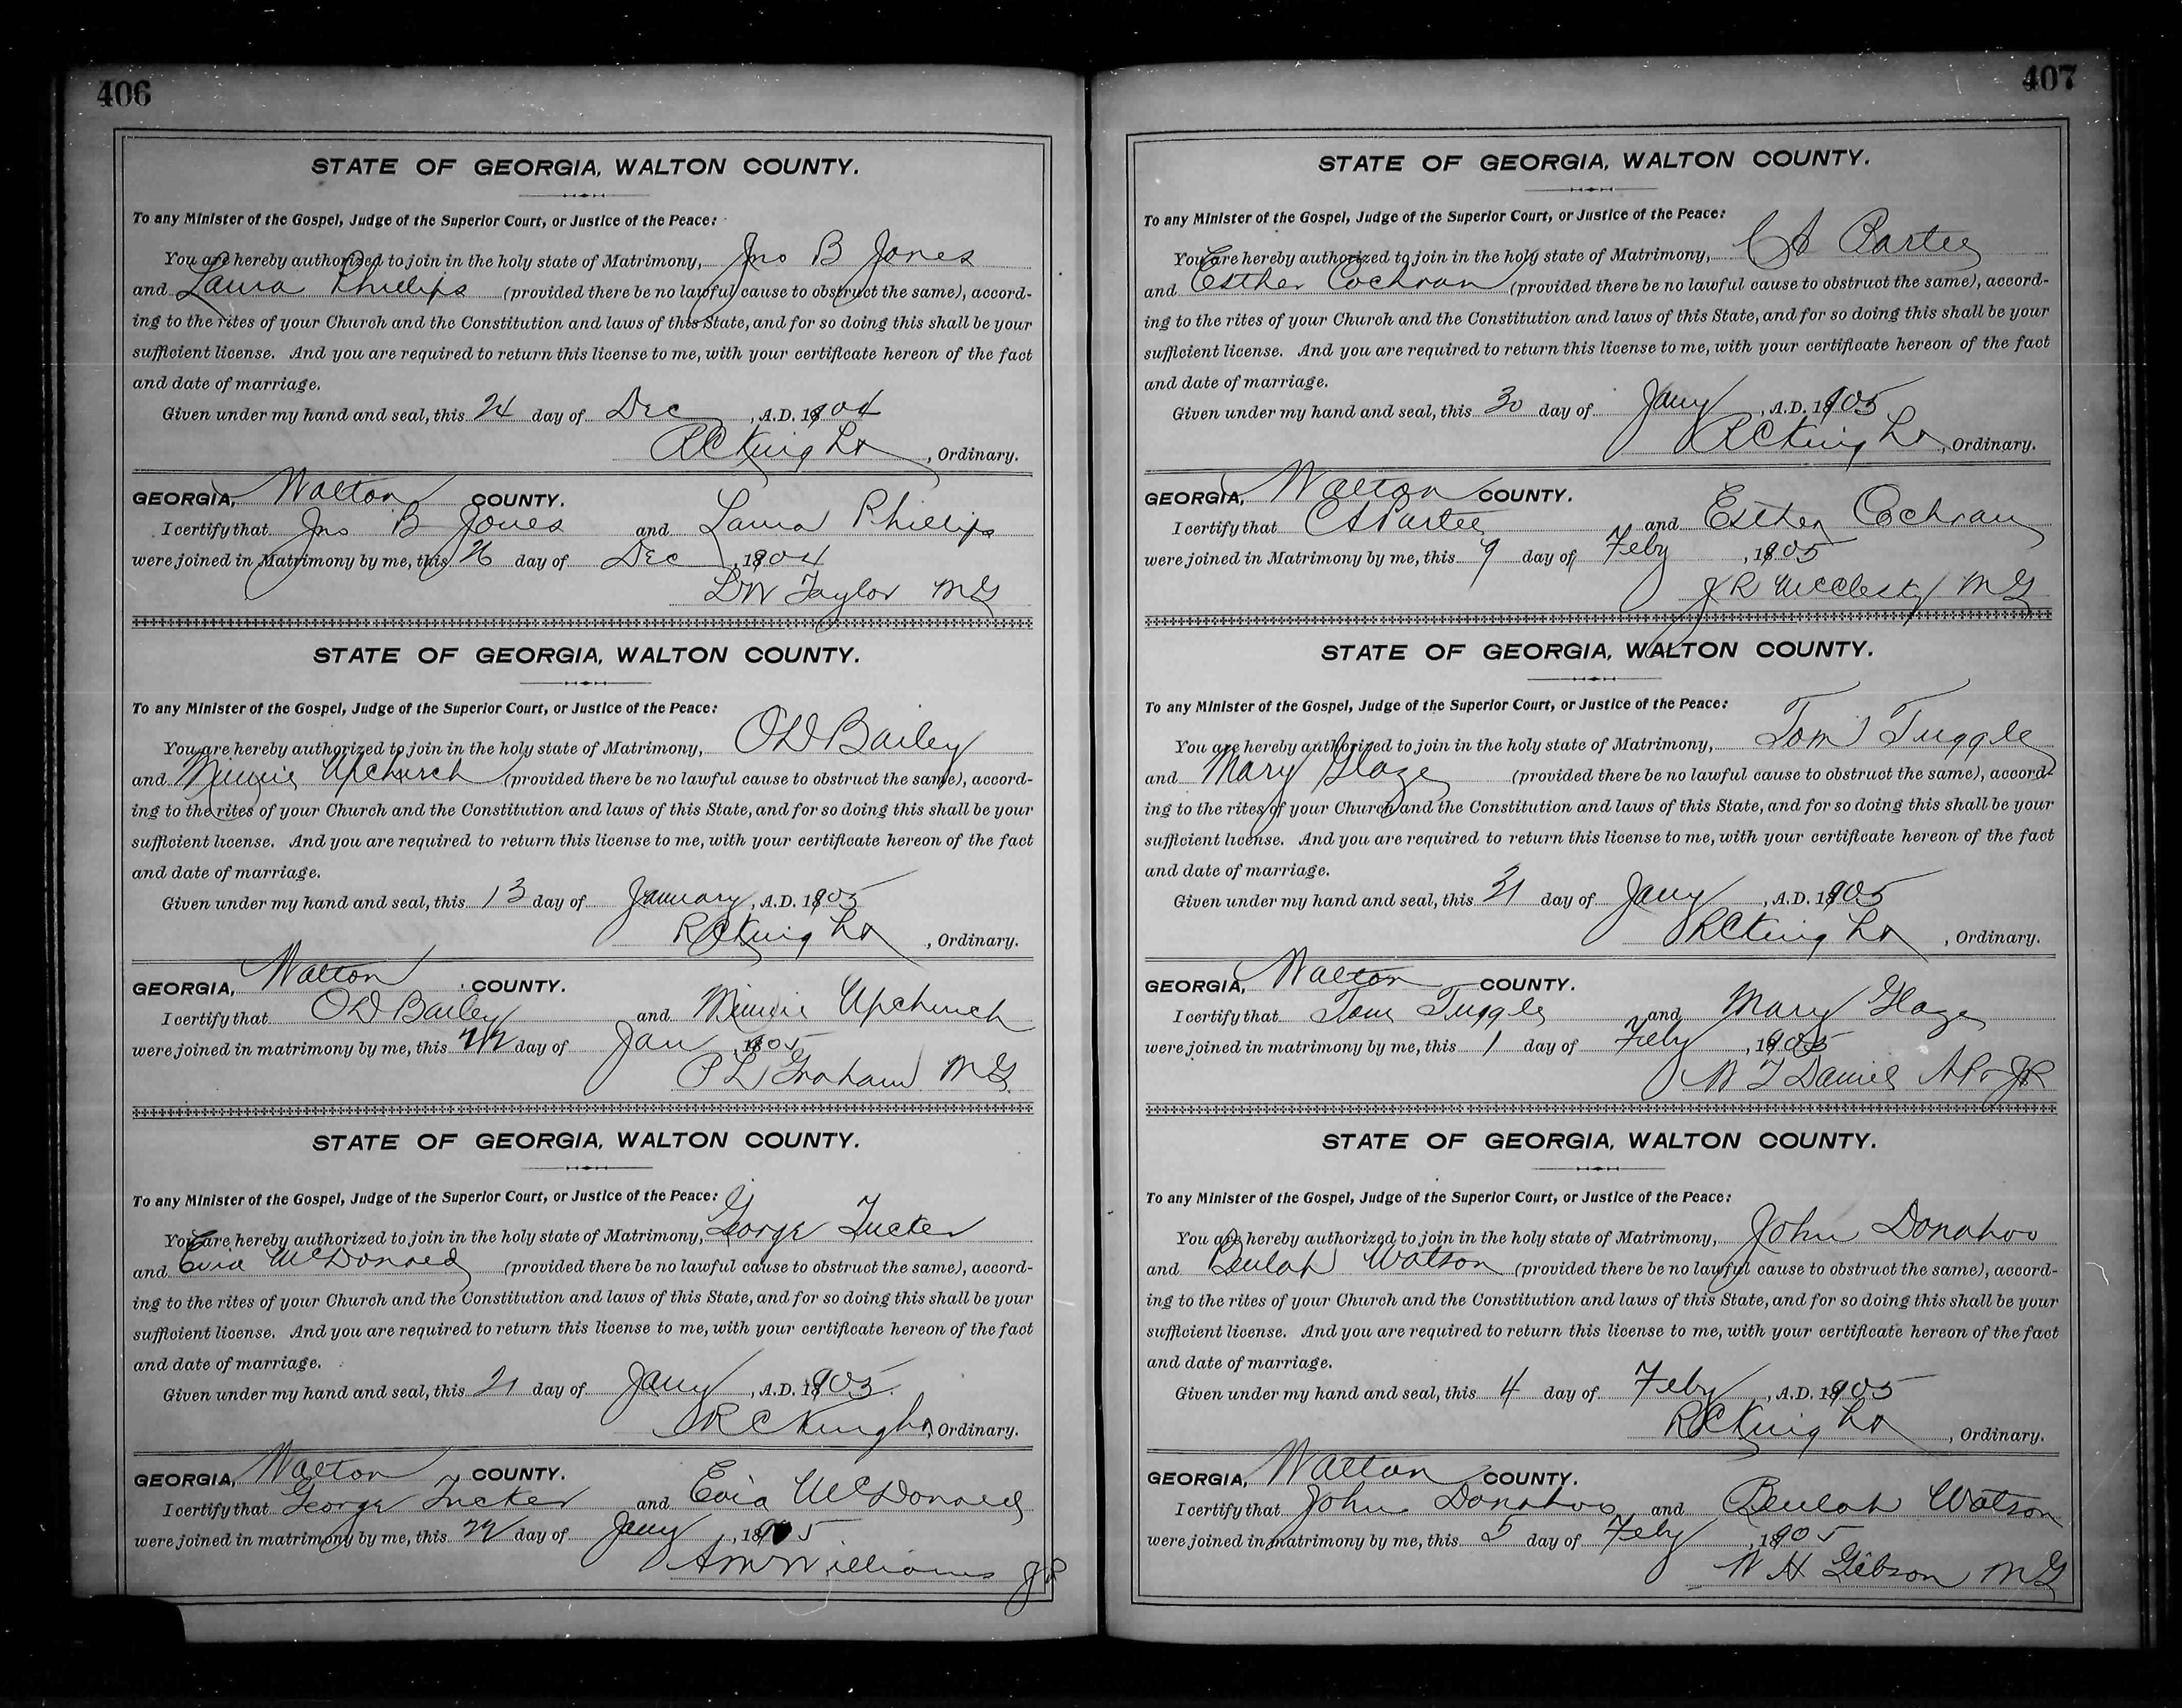 406
STATE OF GEORGIA, WALTON COUNTY.
To any Minister of the Gospel, Judge of the Superior Court, or Justice of the Peace:
You are hereby authorized to join in the holy state of Matrimony, Jno B Jones
and Laura Phillips (provided there be no lawful cause to obstruct the same), accord-
ing to the rites of your Church and the Constitution and laws of this State, and for so doing this shall be your
sufficient license. And you are required to return this license to me, with your certificate hereon of the fact
and date of marriage.
Given under my hand and seal, this 24 day of Dec, A.D. 1904
RC Knight, Ordinary.
GEORGIA, Walton COUNTY.
I certify that Jno B Jones and Laura Phillips
were joined in Matrimony by me, this 26 day of Dec, 1904
DW Taylor MG
STATE OF GEORGIA, WALTON COUNTY.
To any Minister of the Gospel, Judge of the Superior Court, or Justice of the Peace:
You are hereby authorized to join in the holy state of Matrimony, OD Bailey
and Minnie Upchurch (provided there be no lawful cause to obstruct the same), accord-
ing to the rites of your Church and the Constitution and laws of this State, and for so doing this shall be your
sufficient license. And you are required to return this license to me, with your certificate hereon of the fact
and date of marriage.
Given under my hand and seal, this 13 day of January, A.D. 1905
RC King Lo, Ordinary.
GEORGIA, Walton COUNTY.
I certify that OD Bailey and Minnie Upchurch
were joined in matrimony by me, this day of Jan, 1905
PL Graham MG
STATE OF GEORGIA, WALTON COUNTY.
To any Minister of the Gospel, Judge of the Superior Court, or Justice of the Peace:
You are hereby authorized to join in the holy state of Matrimony, George Tucker
and Evia McDonald (provided there be no lawful cause to obstruct the same), accord-
ing to the rites of your Church and the Constitution and laws of this State, and for so doing this shall be your
sufficient license. And you are required to return this license to me, with your certificate hereon of the fact
and date of marriage.
Given under my hand and seal, this 21 day of Jany, A.D. 1905
RC King Lo, Ordinary.
GEORGIA, Walton COUNTY.
I certify that George Tucker and Evia McDonald
were joined in matrimony by me, this 22 day of Jany, 1905
AM Williams JP
407
STATE OF GEORGIA, WALTON COUNTY.
To any Minister of the Gospel, Judge of the Superior Court, or Justice of the Peace:
You are hereby authorized to join in the holy state of Matrimony, CA Partee
and Esther Cochran (provided there be no lawful cause to obstruct the same), accord-
ing to the rites of your Church and the Constitution and laws of this State, and for so doing this shall be your
sufficient license. And you are required to return this license to me, with your certificate hereon of the fact
and date of marriage.
Given under my hand and seal, this 30 day of Jany, A.D. 1905
RC King Lo, Ordinary.
GEORGIA, Walton COUNTY.
I certify that CA Partee and Esther Cochran
were joined in Matrimony by me, this 9 day of Feby, 1905
JR McClesky MG
STATE OF GEORGIA, WALTON COUNTY.
To any Minister of the Gospel, Judge of the Superior Court, or Justice of the Peace:
You are hereby authorized to join in the holy state of Matrimony, Tom Tuggle
and Mary Glaze (provided there be no lawful cause to obstruct the same), accord-
ing to the rites of your Church and the Constitution and laws of this State, and for so doing this shall be your
sufficient license. And you are required to return this license to me, with your certificate hereon of the fact
and date of marriage.
Given under my hand and seal, this 31 day of Jany, A.D. 1905
RC King Lo, Ordinary.
GEORGIA, Walton COUNTY.
I certify that Tom Tuggle and Mary Glaze
were joined in matrimony by me, this 1 day of Feby, 1905
W T Daniel
STATE OF GEORGIA, WALTON COUNTY.
To any Minister of the Gospel, Judge of the Superior Court, or Justice of the Peace:
You are hereby authorized to join in the holy state of Matrimony, John Donahoo
and Beulah Watson (provided there be no lawful cause to obstruct the same), accord-
ing to the rites of your Church and the Constitution and laws of this State, and for so doing this shall be your
sufficient license. And you are required to return this license to me, with your certificate hereon of the fact
and date of marriage.
Given under my hand and seal, this 4 day of Feby, A.D. 1905
RC King Lo, Ordinary.
GEORGIA, Walton COUNTY.
I certify that John Donahoo and Beulah Watson
were joined in matrimony by me, this 5 day of Feby, 1905
W H Gibson MG